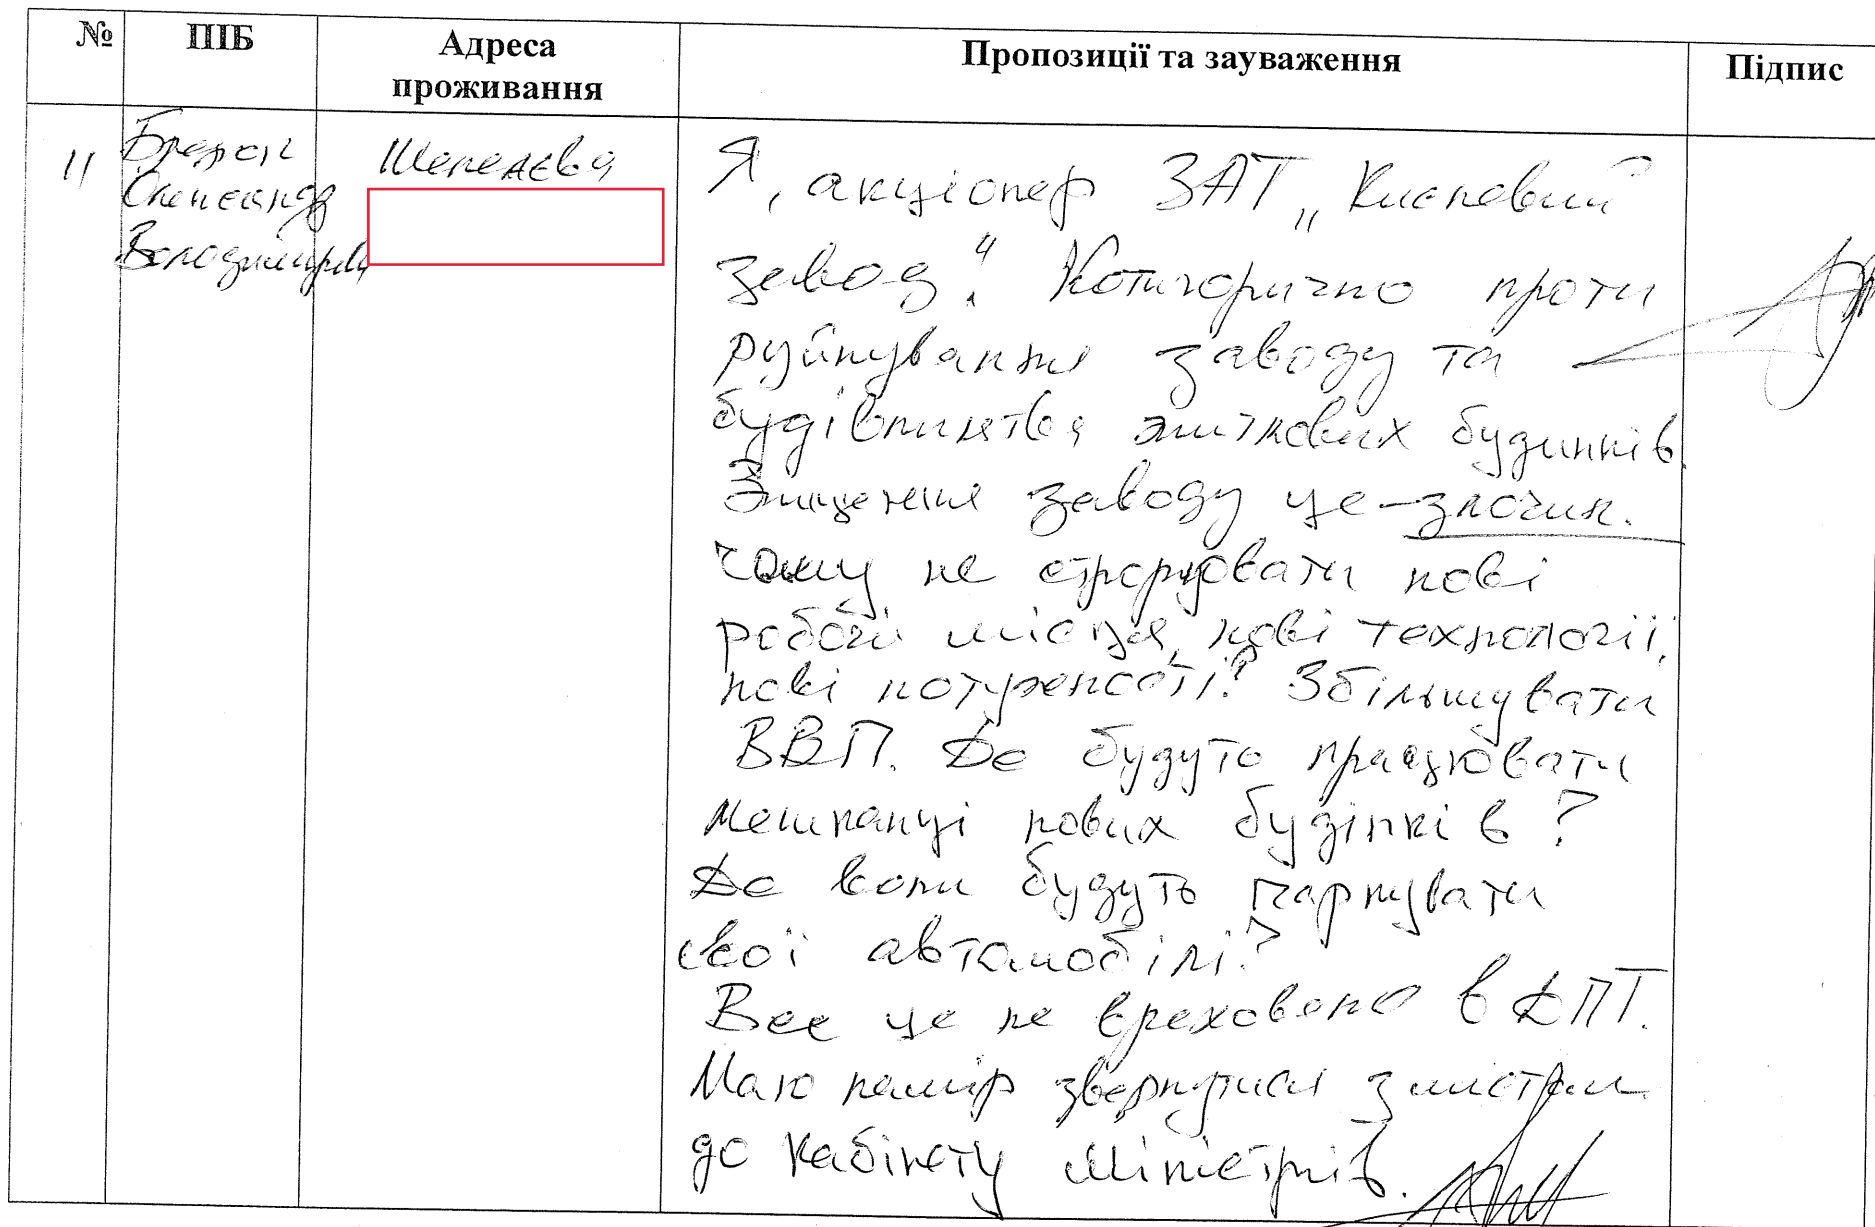 № ПІБ Адреса проживання Пропозиції та зауваження Підпис
11
Володимирів
Шепелєва
Я, акціонер ЗАТ „Кисневий
завод“. Котигорично проти
руйнування заводу та
будівництва житкових будинків.
Знищення заводу це – злочин.
Чому не створювати нові
робочі місця, нові технології,
нові потужності? Збільшувати
ВВП. Де будуть працювати
мешканці нових будінків?
Де вони будуть паркувати
свої автомобілі?
Все це не враховано в ДПТ.
Маю намір звернутися з листом
до Кабінету Міністрів.